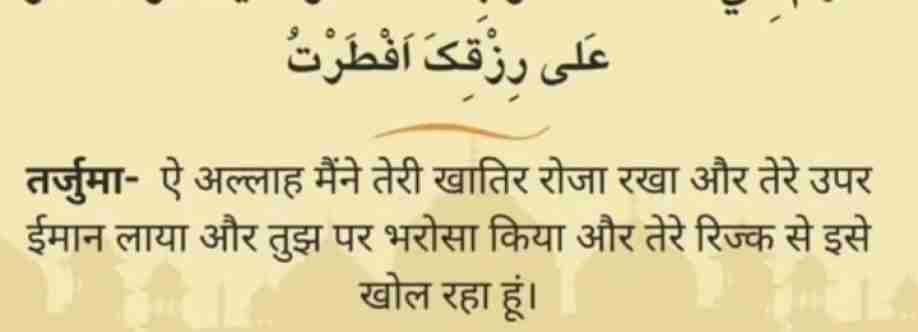 عَلى رِزْقِكَ اَفْطَرْتُ
तर्जुमा- ऐ अल्लाह मैंने तेरी खातिर रोजा रखा और तेरे उपर
ईमान लाया और तुझ पर भरोसा किया और तेरे रिज्क से इसे
खोल रहा हूं।